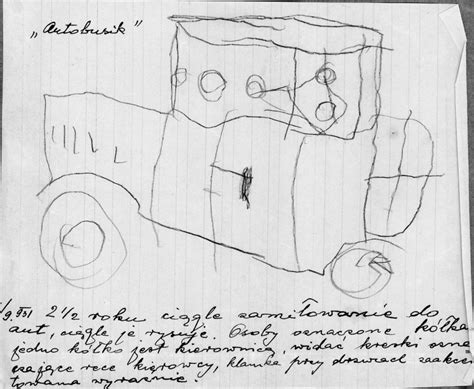 „Autobusik”
2½ roku ciągle zamiłowanie do
aut, ciągle je rysuje. Osoby oznaczone kółka
jedno kółko jest kierownicą, widać kreski ozna
czające ręce kierowcy, klamka przy drzwiach zaakcen
towana wyraźnie.